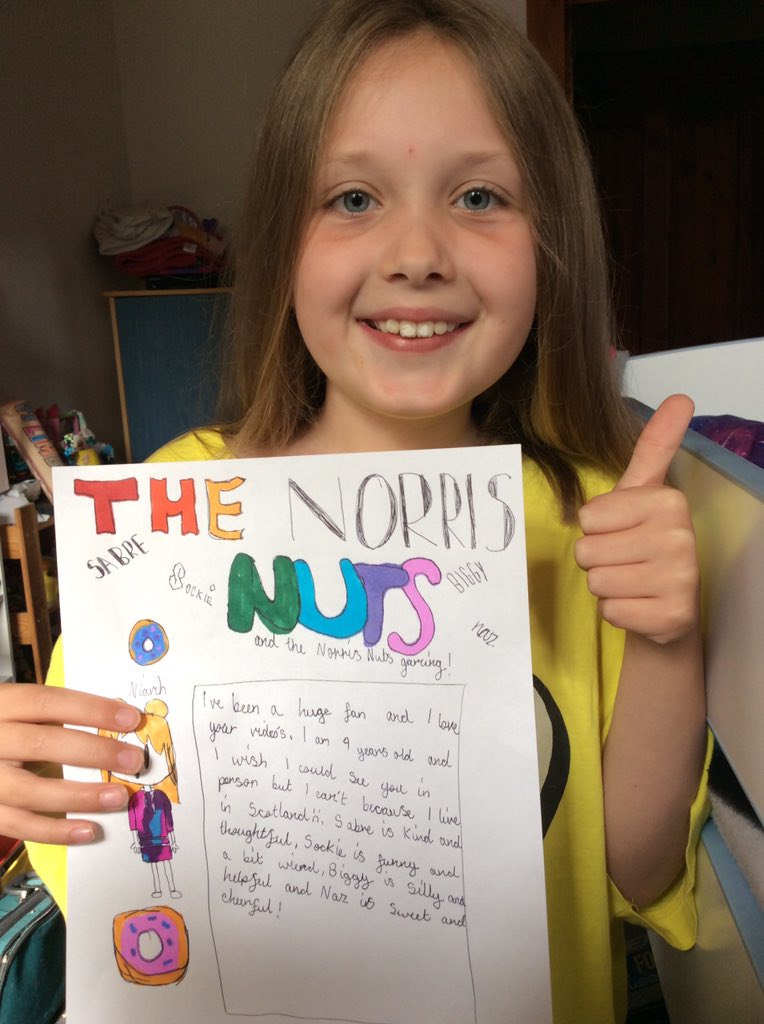 THE NORRIS
SABRE
Sockie
NUTS
BIGGY
naz
and the Norris Nuts gaming!
Niamh
I've been a huge fan and I love
your video's. I am 9 years old and
I wish I could see you in
person but I can't because I live
in Scotland ):. Sabre is Kind and
thoughtful, Sockie is funny and
a bit weird, Biggy is Silly and
helpful and Naz is Sweet and
cheerful!